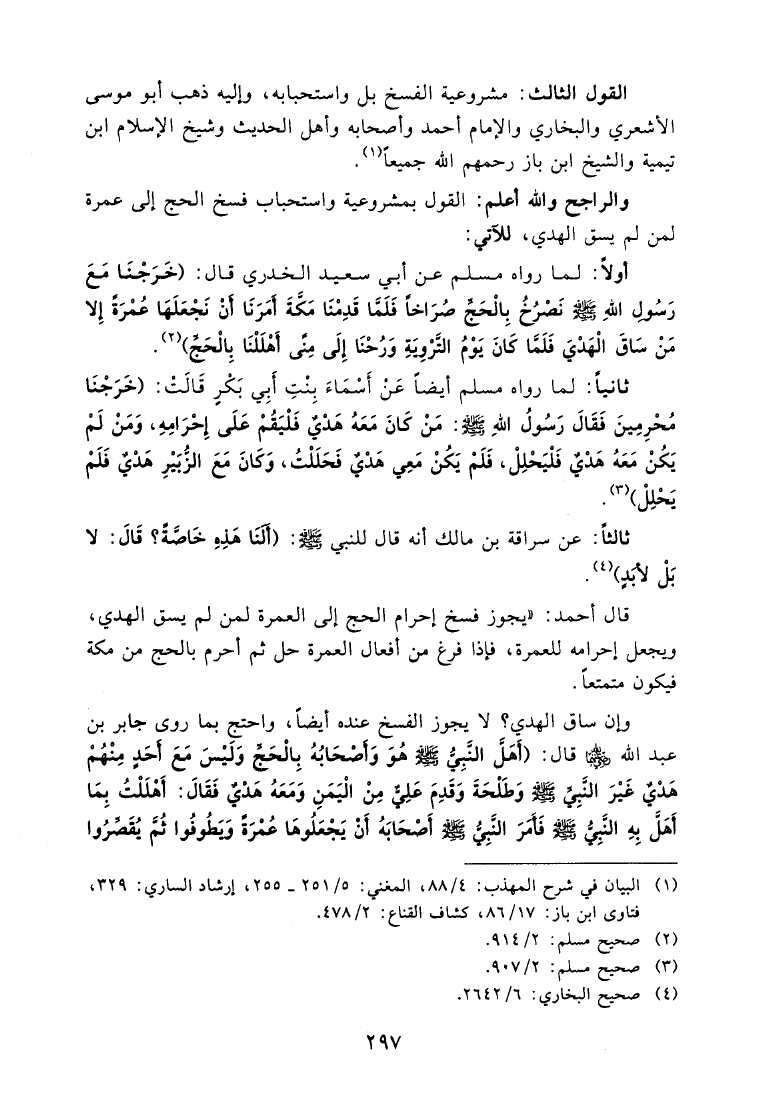 القول الثالث: مشروعية الفسخ بل واستحبابه، وإليه ذهب أبو موسى
الأشعري والبخاري والإمام أحمد وأصحابه وأهل الحديث وشيخ الإسلام ابن
تيمية والشيخ ابن باز رحمهم الله جميعاً(١).
والراجح والله أعلم: القول بمشروعية واستحباب فسخ الحج إلى عمرة
لمن لم يسق الهدي، للآتي:
أولاً: لما رواه مسلم عن أبي سعيد الخدري قال: (خَرَجْنَا مَعَ
رَسُولِ اللهِ ﷺ نَصْرُخُ بِالْحَجِّ صُرَاخاً فَلَمَّا قَدِمْنَا مَكَّةَ أَمَرَنَا أَنْ نَجْعَلَهَا عُمْرَةً إِلا
مَنْ سَاقَ الْهَدْيَ فَلَمَّا كَانَ يَوْمُ التَّرْوِيَةِ وَرُحْنَا إِلَى مِنًى أَهْلَلْنَا بِالْحَجِّ)(٢).
ثانياً: لما رواه مسلم أيضاً عَنْ أَسْمَاءَ بِنْتِ أَبِي بَكْرٍ قَالَتْ: (خَرَجْنَا
مُحْرِمِينَ فَقَالَ رَسُولُ اللهِ ﷺ: مَنْ كَانَ مَعَهُ هَدْيٌ فَلْيَقُمْ عَلَى إِحْرَامِهِ، وَمَنْ لَمْ
يَكُنْ مَعَهُ هَدْيٌ فَلْيَحْلِلْ، فَلَمْ يَكُنْ مَعِي هَدْيٌ فَحَلَلْتُ، وَكَانَ مَعَ الزُّبَيْرِ هَدْيٌ فَلَمْ
يَحْلِلْ)(٣).
ثالثاً: عن سراقة بن مالك أنه قال للنبي ﷺ: (أَلَنَا هَذِهِ خَاصَّةً؟ قَالَ: لا
بَلْ لأَبَدٍ)(٤).
قال أحمد: «يجوز فسخ إحرام الحج إلى العمرة لمن لم يسق الهدي،
ويجعل إحرامه للعمرة، فإذا فرغ من أفعال العمرة حل ثم أحرم بالحج من مكة
فيكون متمتعاً.
وإن ساق الهدي؟ لا يجوز الفسخ عنده أيضاً، واحتج بما روى جابر بن
عبد الله رضي الله عنهما قال: (أَهَلَّ النَّبِيُّ ﷺ هُوَ وَأَصْحَابُهُ بِالْحَجِّ وَلَيْسَ مَعَ أَحَدٍ مِنْهُمْ
هَدْيٌ غَيْرَ النَّبِيِّ ﷺ وَطَلْحَةَ وَقَدِمَ عَلِيٌّ مِنْ الْيَمَنِ وَمَعَهُ هَدْيٌ فَقَالَ: أَهْلَلْتُ بِمَا
أَهَلَّ بِهِ النَّبِيُّ ﷺ فَأَمَرَ النَّبِيُّ ﷺ أَصْحَابَهُ أَنْ يَجْعَلُوهَا عُمْرَةً وَيَطُوفُوا ثُمَّ يُقَصِّرُوا
(١) البيان في شرح المهذب: ٨٨/٤، المغني: ٢٥١/٥ ـ ٢٥٥، إرشاد الساري: ٣٢٩،
فتاوى ابن باز: ٨٦/١٧، كشاف القناع: ٤٧٨/٢.
(٢) صحيح مسلم: ٩١٤/٢.
(٣) صحيح مسلم: ٩٠٧/٢.
(٤) صحيح البخاري: ٢٦٤٢/٦.
٢٩٧